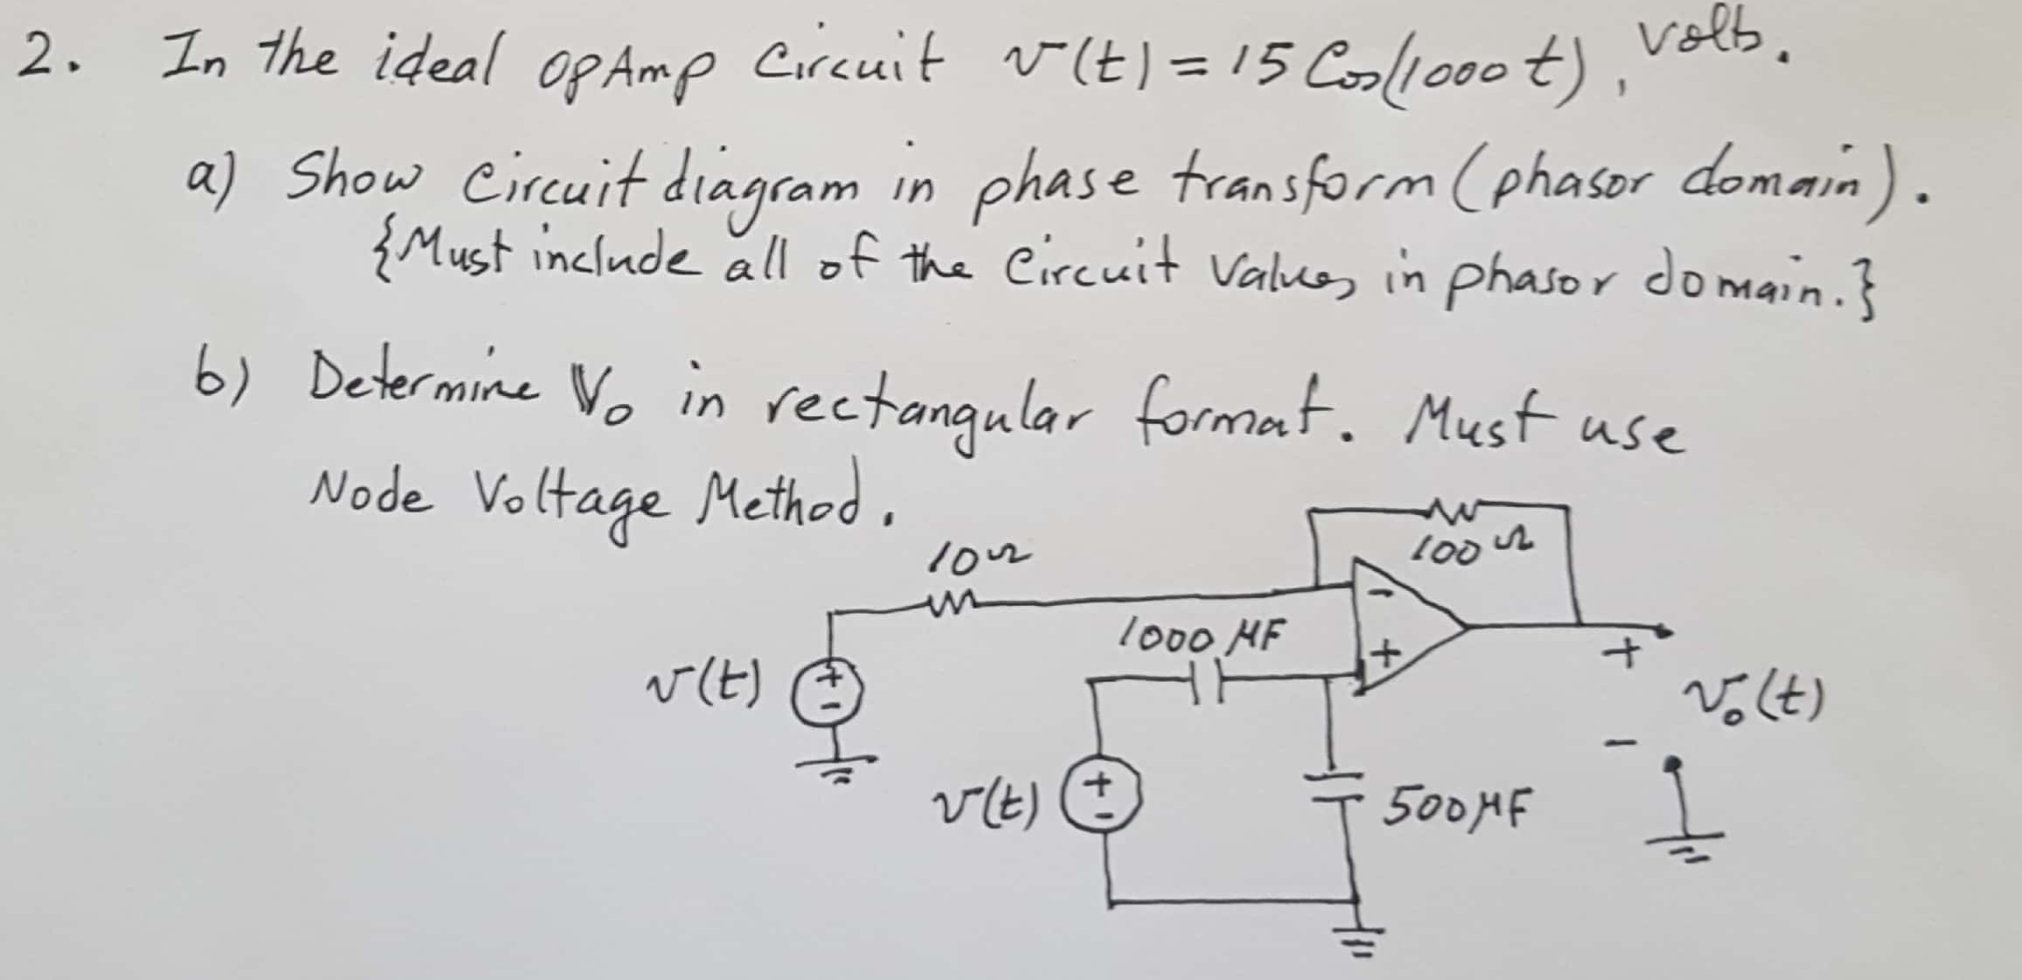 2. In the ideal opAmp Circuit v(t) = 15 Cos(1000t), volts.
a) Show Circuit diagram in phase transform (phasor domain).
{Must include all of the Circuit Values in phasor domain.}
b) Determine V₀ in rectangular format. Must use
Node Voltage Method.
10Ω
100Ω
-
1000 μF
+
+
v(t)
+
-
v₀(t)
-
v(t)
+
-
500μF